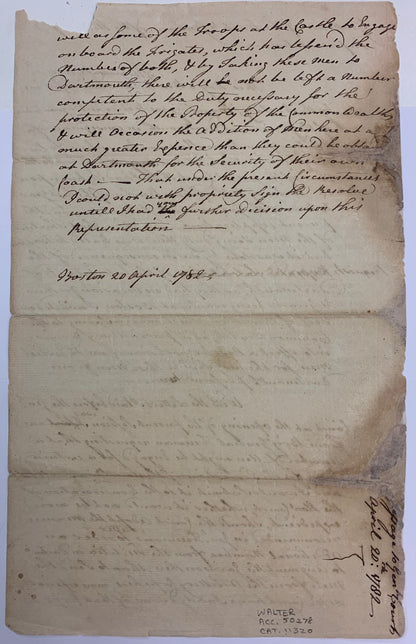 well as some of the Troops at the Castle to Engage
on board the Frigates, which has lessend the
Number of both, & by taking these men to
Dartmouth, there will not be left a Number
competent to the Duty necessary for the
protection of the Property of the Common Wealth,
& will Occasion the Addition of Men here at a
much greater Expence than they could be obtaind
at Dartmouth for the Security of their own
Coast — That under the present Circumstances
I could not with propriety sign the Resolve
untill I had your further decision upon this
Representation —
Boston 20 April 1782
April 20: 1782
WALTER
ACC. 50278
CAT. 11320